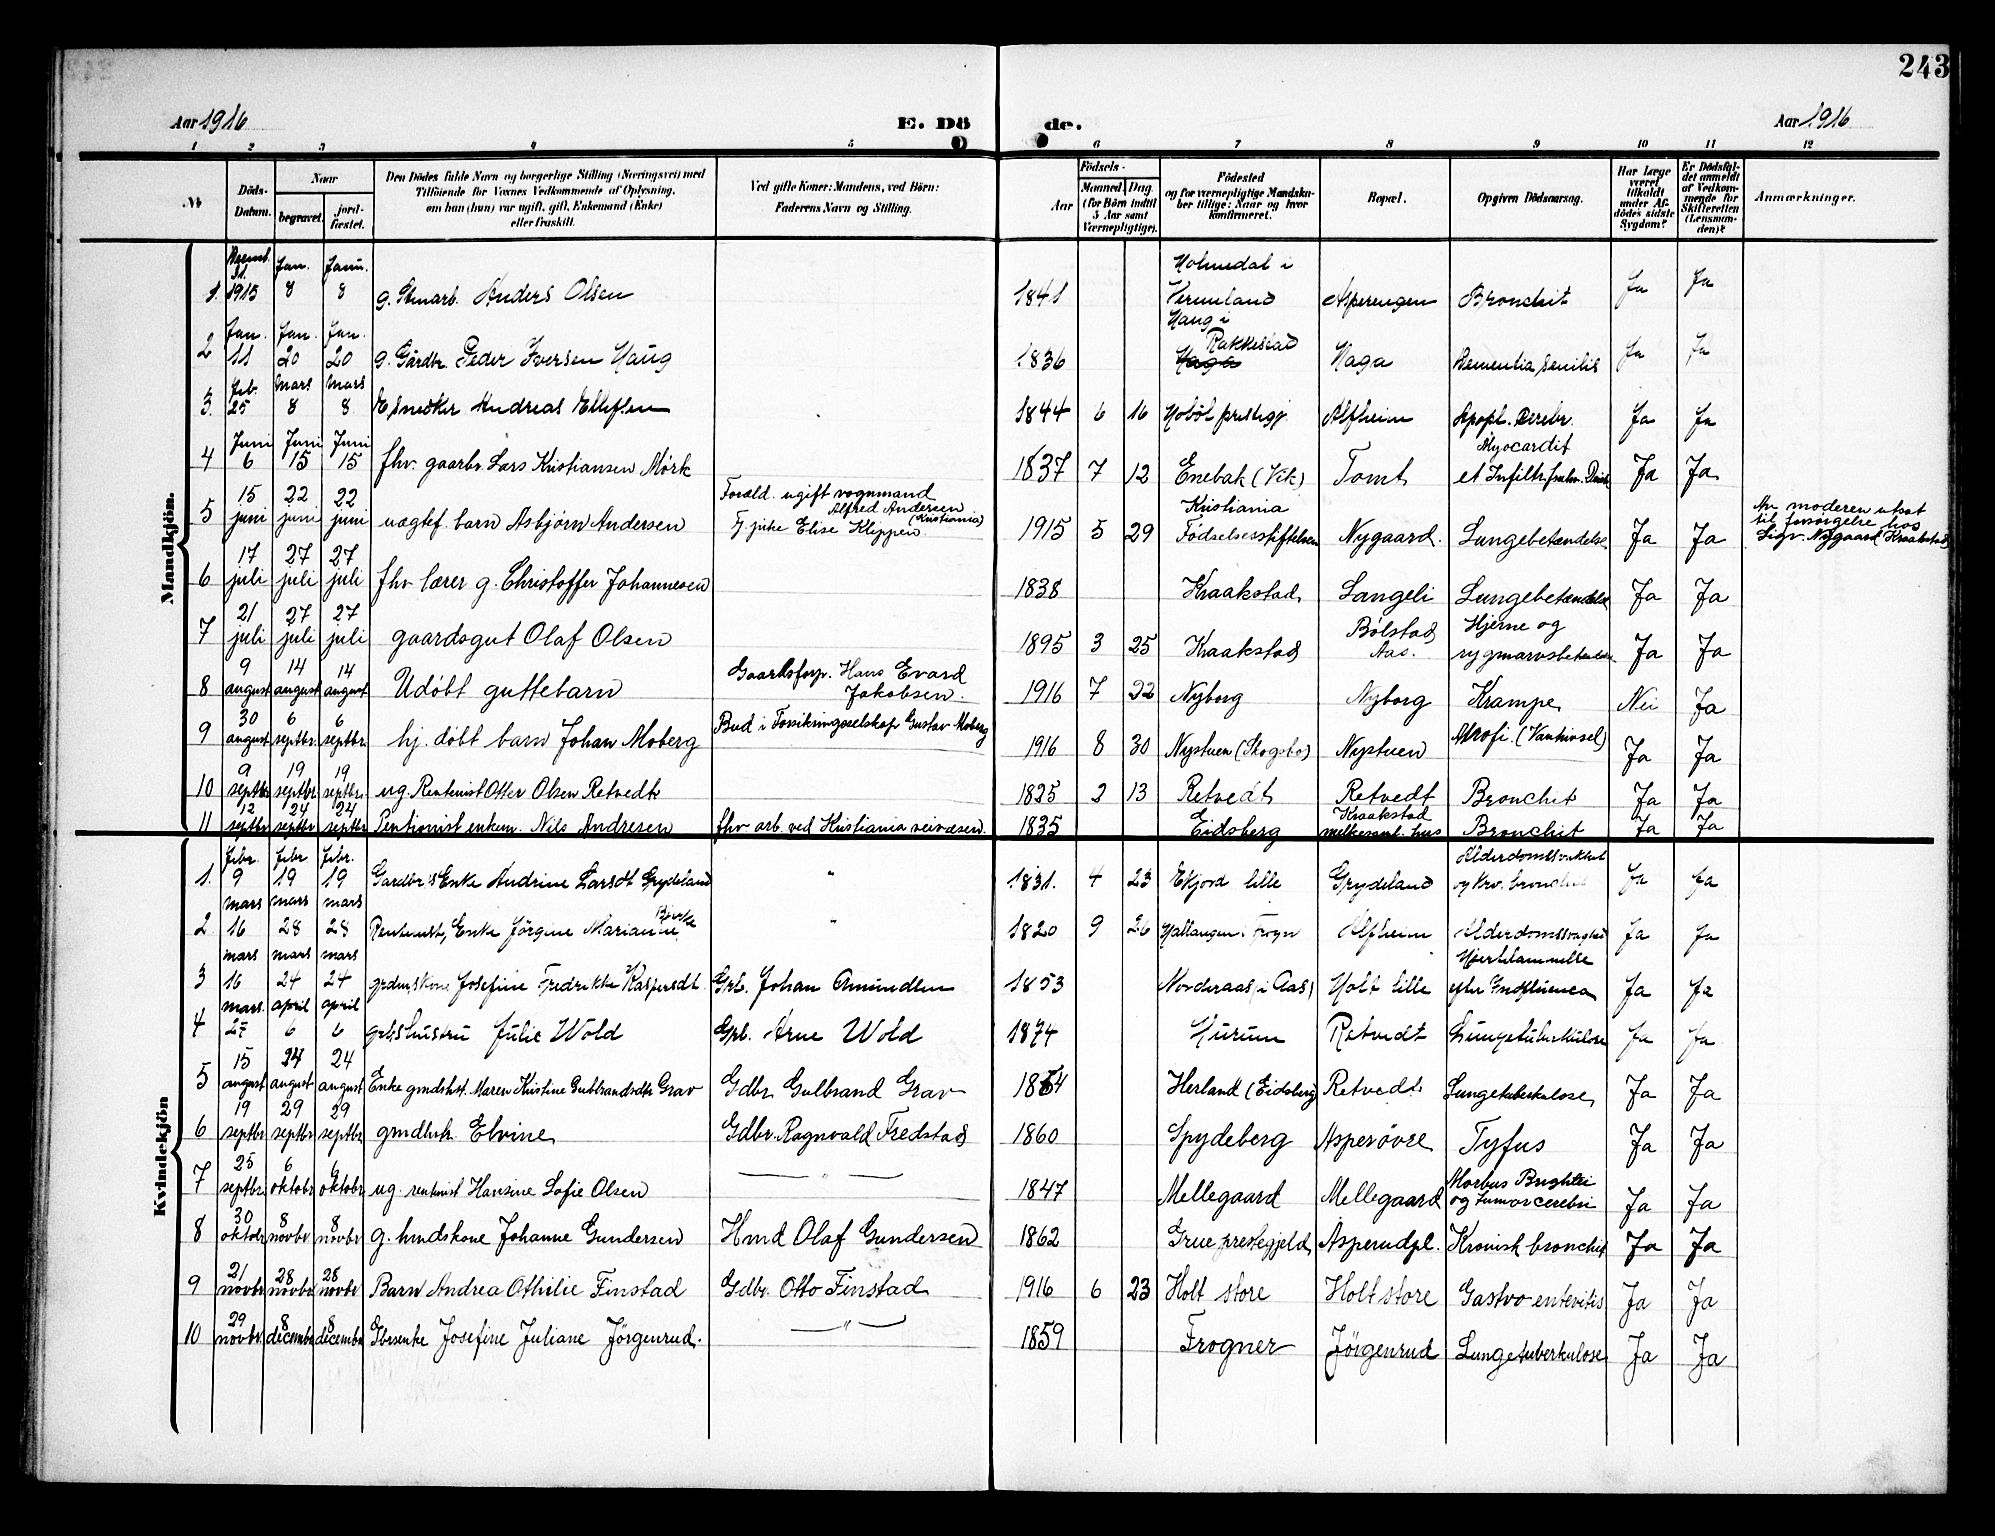 243
Aar 1916 E. Dö de. Aar 1916
1 2 3 4 5 6 7 8 9 10 11 12
No
Döds-Datum.
Naar
begravet.
jord-fæstet.
Den Dödes fulde Navn og borgerlige Stilling (Næringsvei) med
Tilföiende for Voxnes Vedkommende af Oplysning,
om han (hun) var ugift, gift, Enkemand (Enke)
eller fraskilt.
Ved gifte Koner: Mandens, ved Börn:
Faderens Navn og Stilling.
Födsels-
Aar
Maaned. Dag.
(for Börn indtil
5 Aar samt
Værnepligtige).
Födested
og for værnepligtige Mandskaber tillige: Naar og hvor
konfirmeret.
Bopæl.
Opgiven Dödsaarsag.
Har Læge været tilkaldt under Afdödes sidste Sygdom?
Er Dödsfaldet anmeldt af Vedkommende for Skifteretten (Lensmanden)?
Anmærkninger.
Mandkjön.
1. 31. 1915 Jan. 8 Janu. 8 g. Anders Olsen 1841 Holmedal i Vermland Asperengen Bronchit Ja Ja
2 Jan. 11 Jan. 20 Jan. 20 g. Gårdbr. Peder Iversen Haug 1836 Haug i Rakkestad Haga Haga Dementia senilis Ja Ja
3. Feb. 25 Mars 8 Mars 8 E, snedker Andreas Ellefsen 1844 6 16 Hobøl prestegj. Alfheim Apopl. cerebr. Ja Ja
4 Juni 6 Juni 15 Juni 15 fhv. gaarbr. Lars Kristiansen Mørk 1837 7 12 Enebak (Vik) Tomt Myocardit et Ja Ja
5 15 juni 22 juni 22 juni uægtef. barn Asbjørn Andersen Foræld. ugift vognmand Alfred Andersen (Kristiania) Tj. pike Elise Klippen. 1915 5 29 Kristiania Fødselsesstiftelsen Nygaard. Lungebetændelse Ja Ja Av moderen utsat til forsørgelse hos Sigv. Nygaard Kraakstad
6 17 juli 27 juli 27 juli fhv lærer g. Christoffer Johannesen 1838 Kraakstad Langeli Lungebetændelse Ja Ja
7 21 juli 27 juli 27 juli gaardsgut Olaf Olsen 1895 3 25 Kraakstad Bølstad Aas. Hjerne og rygmarvsbetændelse Ja Ja
8 9 august 14 august 14 august Udøbt guttebarn Gaardsforp. Hans Evard Jakobsen. 1916 7 22 Nyborg Nyborg Krampe Nei Ja
9 30 august 6 septbr. 6 septbr. hj. døbt barn Johan Moberg Bud i Forsikringsselskap Gustav Moberg 1916 8 30 Nystuen (Skogsbo) Nystuen Atrofi. (Vantrivsel) Ja Ja
10 9 septbr 19 septbr 19 septbr. ug. Rentenist Otter Olsen Retvedt 1825 2 13 Retvedt Retvedt Bronchit Ja Ja
11 12 septbr 24 septbr 24 septbr Pentionist enkem. Nils Andresen fhv arb. ved Kristiania veivæsen. 1835 Eidsberg Kraakstad melkesaml. hus Bronchit Ja Ja
Kvindekjön
1. febr. 9 febr 19 febr. 19 Gardbr's Enke Andrine Larsdt Grydeland " 1831. 4 23 Ekjord lille Grydeland Alderdomssvakhet og Kr. bronchit Ja Ja
2. mars 16 mars 28 mars 28 Rentenist, Enke Jørgine Marianne " 1820 9 26 Hallangen i Frogn Alfheim Alderdomssvaghet Ja Ja
3 mars 16 mars 24 mars 24 Josefine Fredrikke Kaspersdt. Grb. Johan Amundsen 1853 Norderaas, i Aas) Holt lille Hjertelammelse efter Influenca Ja Ja
4 mars. 27 april 6 april 6 grb's hustru Julie Wold Grb. Arne Wold 1874 Hurum Retvedt Lungetuberkulose Ja Ja
5 15 august 24 august 24 august Enke grndshst. Maren Kristine Gulbrandsdtr Grav Gdbr. Gulbrand Grav 1864 Herland (Eidsberg) Retvedt. Lungetuberkulose, Ja Ja
6 19 septbr 29 septbr 29 septbr Elvine Gdbr. Ragnvald Fredstad 1860 Spydeberg Asper øvre Tyfus Ja Ja
7 25 septbr. 6 oktobr. 6 oktobr ug. rentenist Hansine Sofie Olsen — " — 1847 Mellegaard Mellegaard Morbus Brightii og tumor cerebri Ja Ja
8 30 oktobr 8 novbr 8 novbr g. hmdskone Johanne Gundersen Hmd Olaf Gundersen 1862 Grue prestegjeld Asperudpl. Kronisk bronchit Ja Ja
9 21 novbr 28 novbr 28 novbr Barn Andrea Othilie Finstad Gdbr. Otto Finstad 1916 6 23 Holt store Holt store Gastro enteritis Ja Ja
10 29 novbr. 8 decembr 8 decembr Gbrsenke Josefine Juliane Jørgenrud. — " — 1859 Frogner Jørgenrud Lungetuberkulose Ja Ja